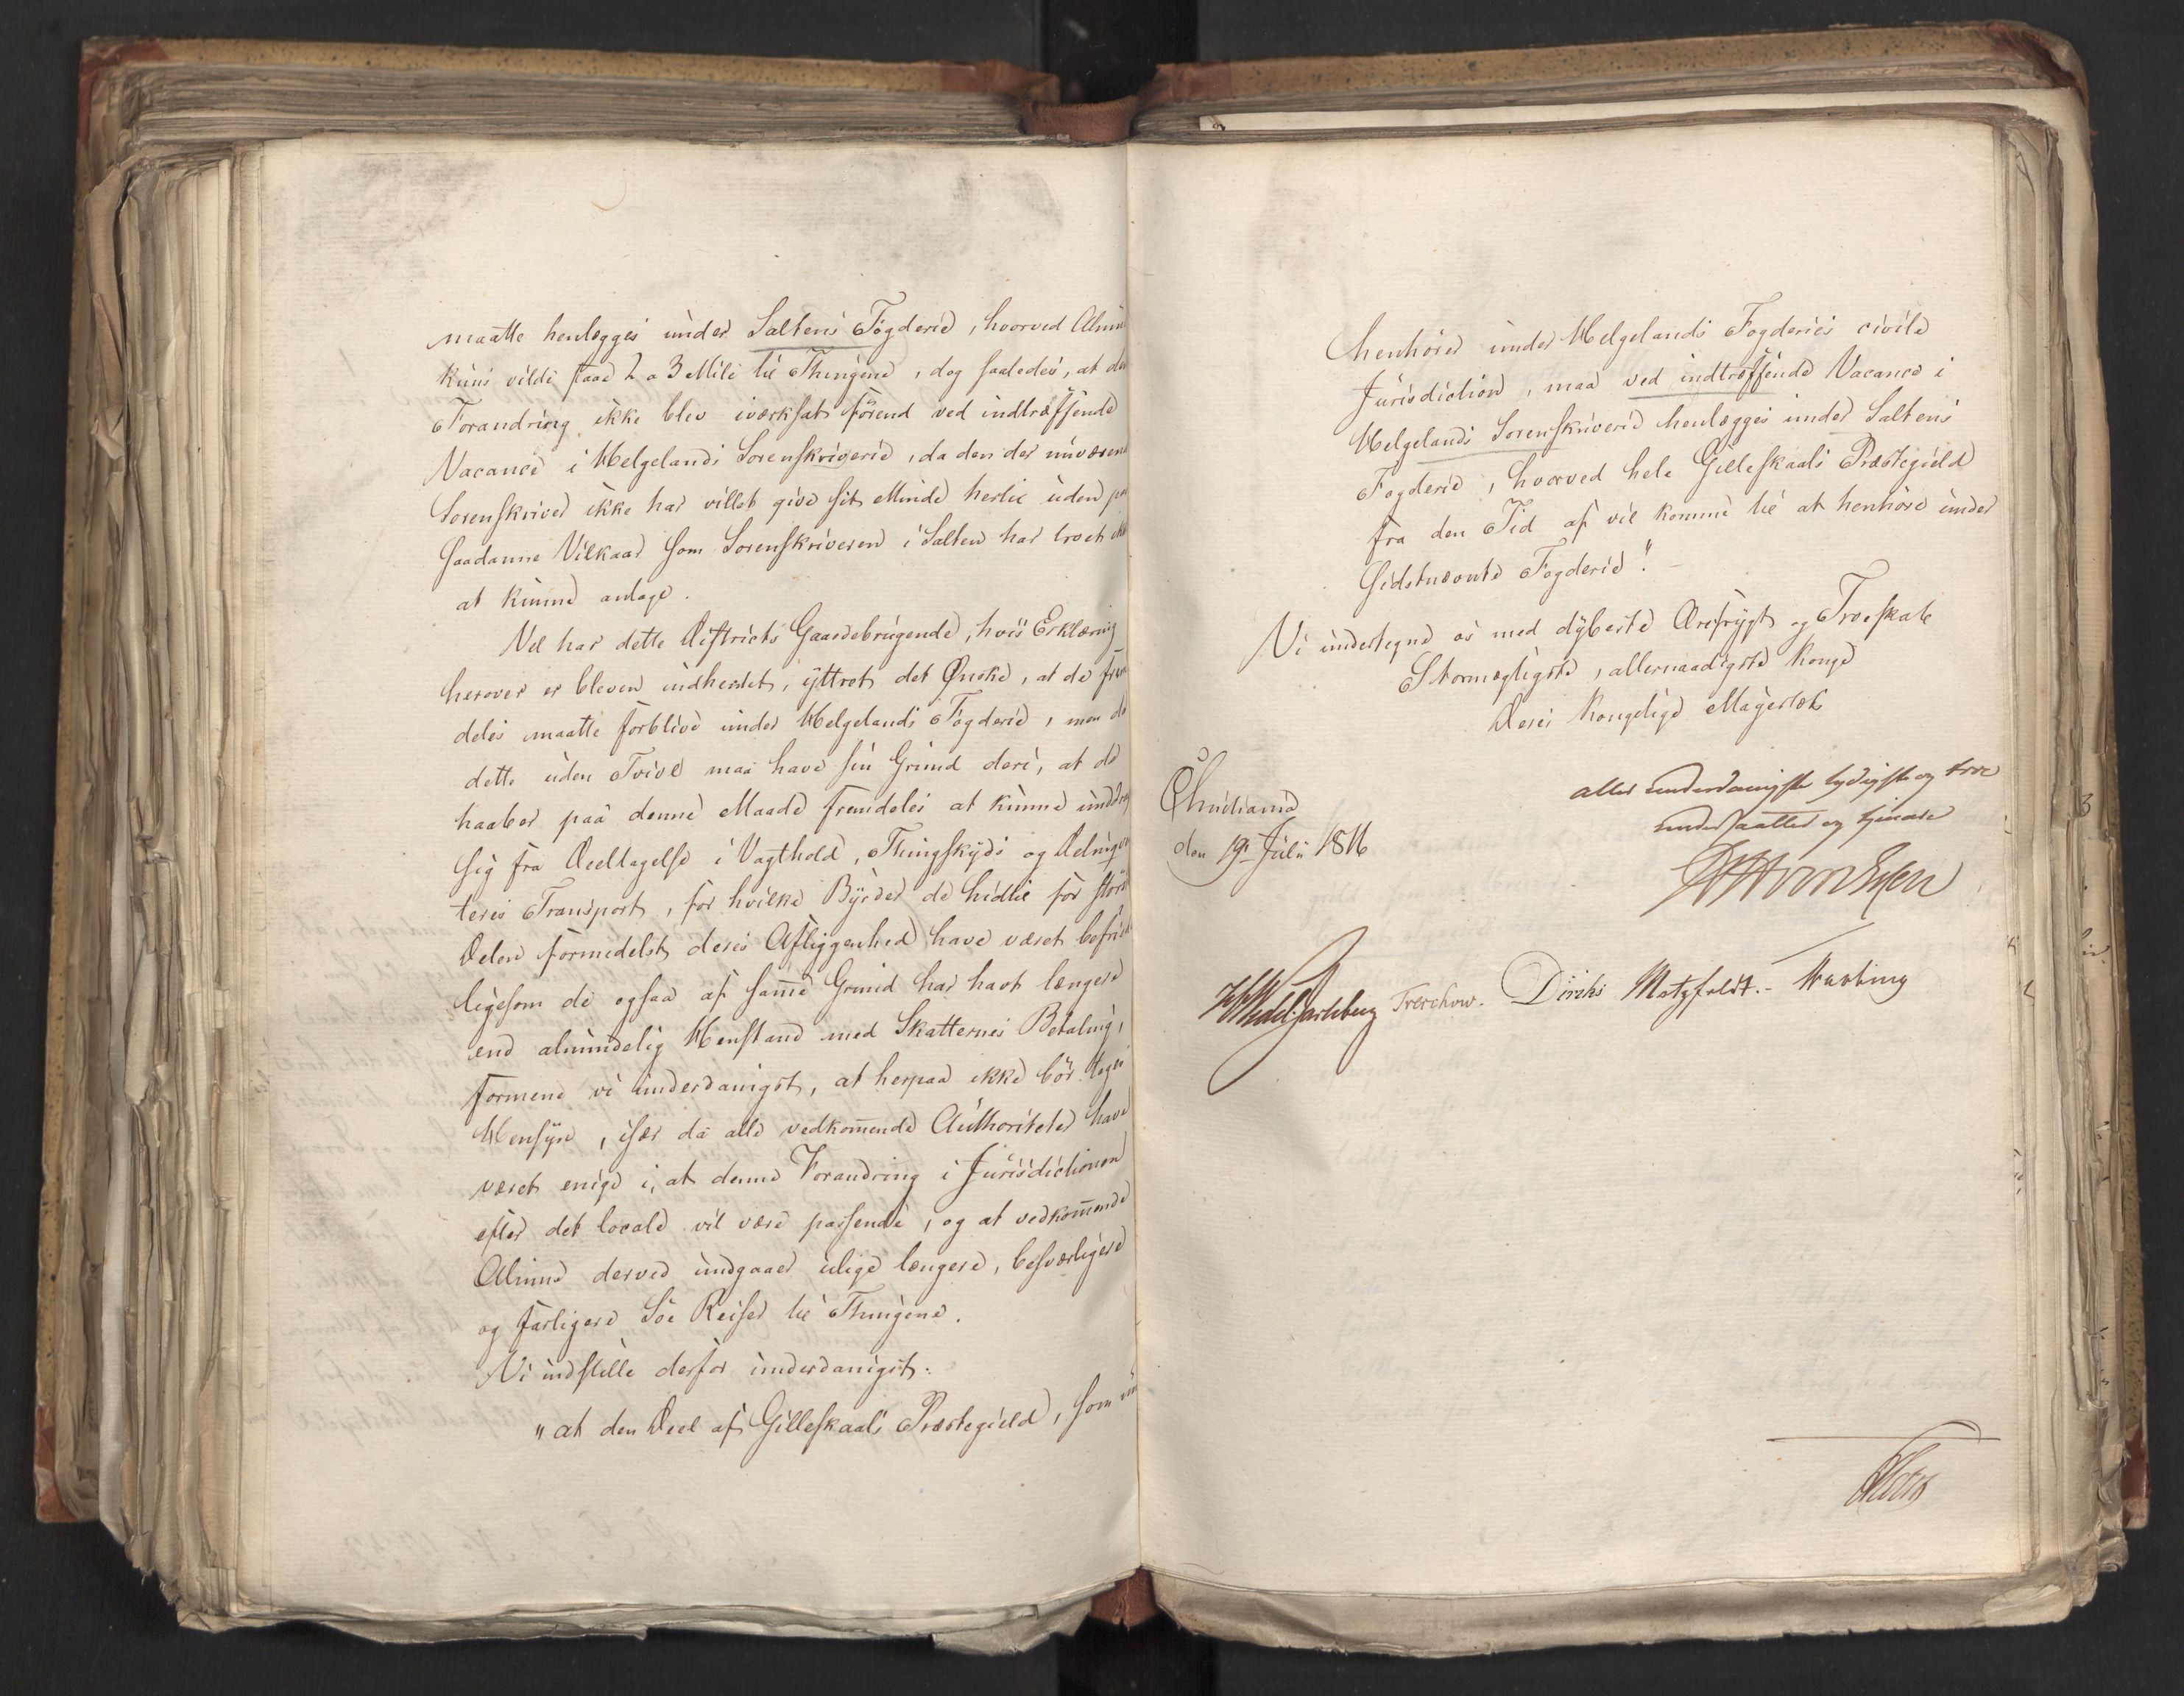 maatte henlægges under Saltens Fogderie, hvorved Almu
kuns vilde faae 2 a 3 Mile til Thingene, dog saaledes, at den
Forandring ikke blev iværksat førend ved indtræffende
Vacance i Helgelands Sorenskriverie, da den der nuværend
Sorenskriver ikke har villet give sit Minde hertil uden paa
saadanne Vilkaar som Sorenskriveren i Salten har troet ikke
at kunne antage.
Vel har dette Districts Gaardebrugende, hvis Erklæring
herover er bleven indhentet, yttret det Ønske, at de frem
deles maatte forblive under Helgelands Fogderie, men da
dette uden Tvivl maa have sin Grund deri, at de
haaber paa denne Maade fremdeles at kunne unddrage
sig fra Deeltagelse i Vagthold, Thingskyds og Delinqven
ters Transport, for hvilke Byrder de hidtil for størst
Delen formedelst deres Afliggenhed have været befriet
ligesom de ogsaa af samme Grund har havt længere
end almindelig Henstand med Skatternes Betaling,
formene vi underdanigst, at herpaa ikke bør tages
Hensyn, især da alle vedkommende Authoriteter have
været enige i, at denne Forandring i Jurisdictionen
efter det locale vil være passende, og at vedkommende
Almue derved undgaaer ulige længere, besværligere
og farligere Søe Reiser til Thingene.
Vi indstille derfor underdanigst:
"at den Deel af Gilleskaals Præstegield, som nu
henhører under Helgelands Fogderies civile
Jurisdiction, maa ved indtræffende Vacance i
Helgelands Sorenskriverie henlægges under Saltens
Fogderie, hvorved hele Gilleskaals Præstegield
fra den Tid af vil komme til at henhøre under
sidstnævnte Fogderie".
Vi undertegne os med dybeste Ærefrygt og Troeskab
Stormægtigste, allernaadigste Konge
Deres Kongelige Majestæts
Christiania
den 19de Julii 1816
aller underdanigste lydigste og troe
undersaatter og tjenere
HWedelJarlsberg Treschow. Diriks Motzfeldt.- Krebting